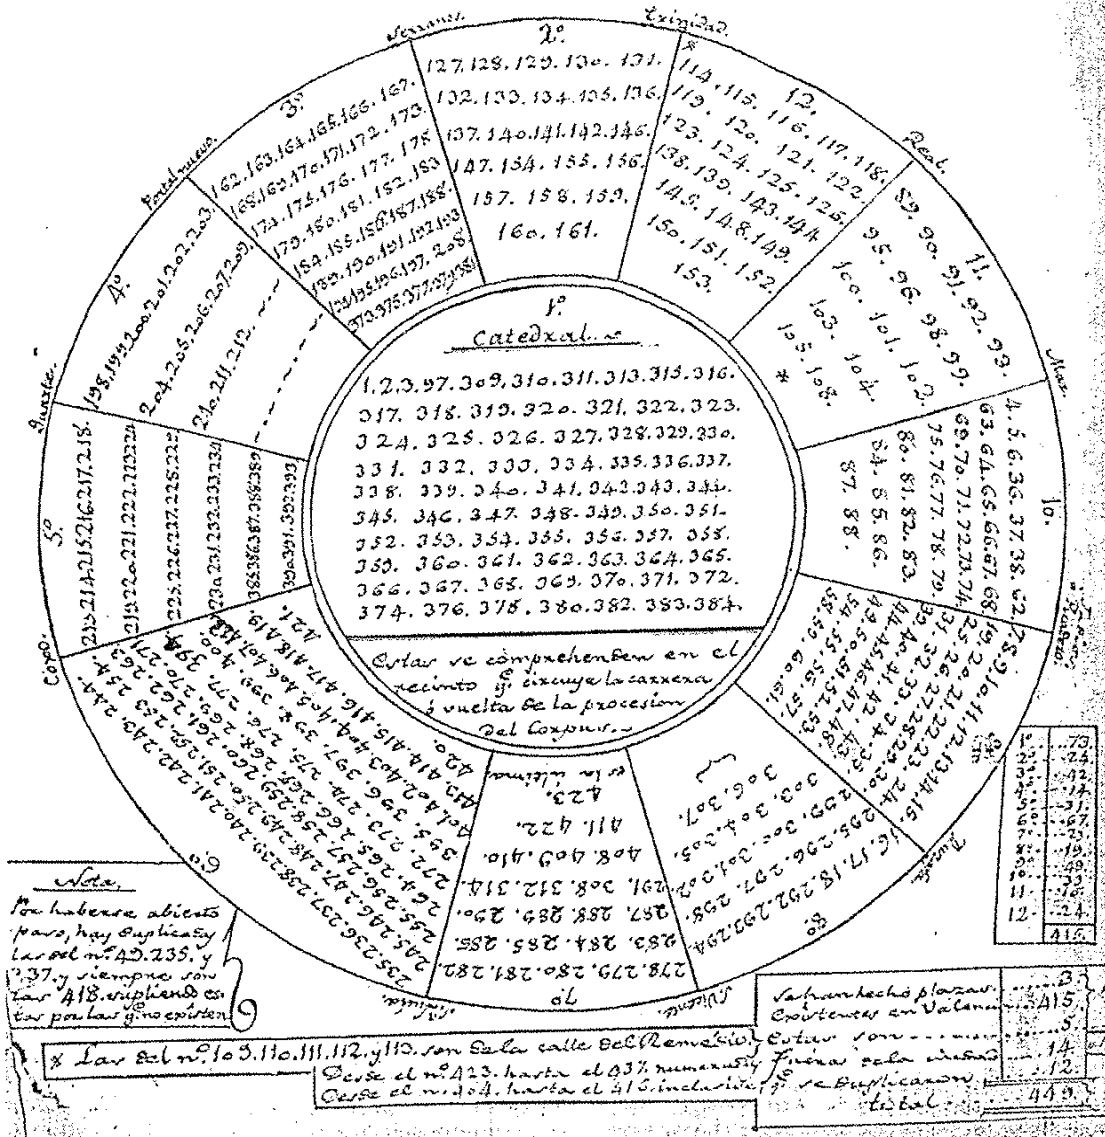 1º
Catedral.
1.2.3.97.309.310.311.313.315.316.
317. 318. 319. 320. 321. 322. 323.
324. 325. 326. 327. 328. 329. 330.
331. 332. 333. 334. 335. 336. 337.
338. 339. 340. 341. 342. 343. 344.
345. 346. 347. 348. 349. 350. 351.
352. 353. 354. 355. 356. 357. 358.
359. 360. 361. 362. 363. 364. 365.
366. 367. 368. 369. 370. 371. 372.
374. 376. 378. 380. 382. 383. 384.
Estas se comprehenden en el
recinto q. circuye la carrera
i vuelta de la procesion
del Corpus.
Serranos.
2º
127. 128. 129. 130. 131.
132. 133. 134. 135. 136.
137. 140. 141. 142. 146.
147. 154. 155. 156.
157. 158. 159.
160. 161.
Trinidad.
12.
* 114. 115. 116. 117. 118.
119. 120. 121. 122.
123. 124. 125. 126.
138. 139. 143. 144
145. 148. 149.
150. 151. 152.
153.
Real.
11.
89. 90. 91. 92. 93.
95. 96. 98. 99.
100. 101. 102.
103. 104.
105. 108.
*
Mar.
10.
4. 5. 6. 36. 37. 38. 62
63. 64. 65. 66. 67. 68.
69. 70. 71. 72. 73. 74.
75. 76. 77. 78. 79.
80. 81. 82. 83.
84. 85. 86.
87. 88.
7. 8. 9. 10. 11. 12. 13. 14. 15.
19. 20. 21. 22. 23. 24.
25. 26. 27. 28. 29. 30.
31. 32. 33. 34. 35.
39. 40. 41. 42. 43.
44. 45. 46. 47. 48.
49. 50. 51. 52. 53.
54. 55. 56. 57.
58. 59. 60. 61.
Ruzafa.
8º
16. 17. 18. 292. 293. 294.
295. 296. 297. 298.
299. 300. 301. 302.
303. 304. 305.
306. 307.
S. Vicente.
7º
278. 279. 280. 281. 282.
283. 284. 285. 286.
287. 288. 289. 290.
291. 308. 312. 314.
408. 409. 410.
411. 422.
423.
es la ultima
6º
235. 236. 237. 238. 239. 240. 241. 242. 243. 244.
245. 246. 247. 248. 249. 250. 251. 252. 253. 254.
255. 256. 257. 258. 259. 260. 261. 262. 263.
264. 265. 266. 267. 268. 269. 270. 271.
272. 273. 274. 275. 276. 277. 394.
395. 396. 397. 398. 399. 400.
401. 402. 403. 404. 405. 406. 407.
413. 414. 415. 416. 417. 418. 419.
420. 421.
Coxo.
5º
213. 214. 215. 216. 217. 218.
219. 220. 221. 222. 223. 224
225. 226. 227. 228. 229
230. 231. 232. 233. 234
385. 386. 387. 388. 389
390. 391. 392. 393
Quarte.
4º
198. 199. 200. 201. 202. 203.
204. 205. 206. 207. 209.
210. 211. 212.
Portal nuevo.
3º
162. 163. 164. 165. 166. 167.
168. 169. 170. 171. 172. 173.
174. 175. 176. 177. 178
179. 180. 181. 182. 183
184. 185. 186. 187. 188.
189. 190. 191. 192. 193
194. 195. 196. 197. 208.
373. 375. 377. 379. 381.
Nota.
Por haberse abierto
paso, hay duplicadas
las del nº 49. 235. y
237. y siempre son
las 418. supliendo es-
tas por las q. no existen
1º 73
2º 24
3º 42
4º 14
5º 31
6º 67
7º
8º 19
9º 49
10
11 16
12 24
415
* Las del nº 109. 110. 111. 112. y 113. son de la calle del Remedio.
Desde el nº 423. hasta el 437. numeradas
Desde el n. 404. hasta el 416. inclusive
Se han hecho plazas. 3
Existentes en Valencia 415
Estas son 5
Fueras de la ciudad 14
se duplicaron 12
total 449